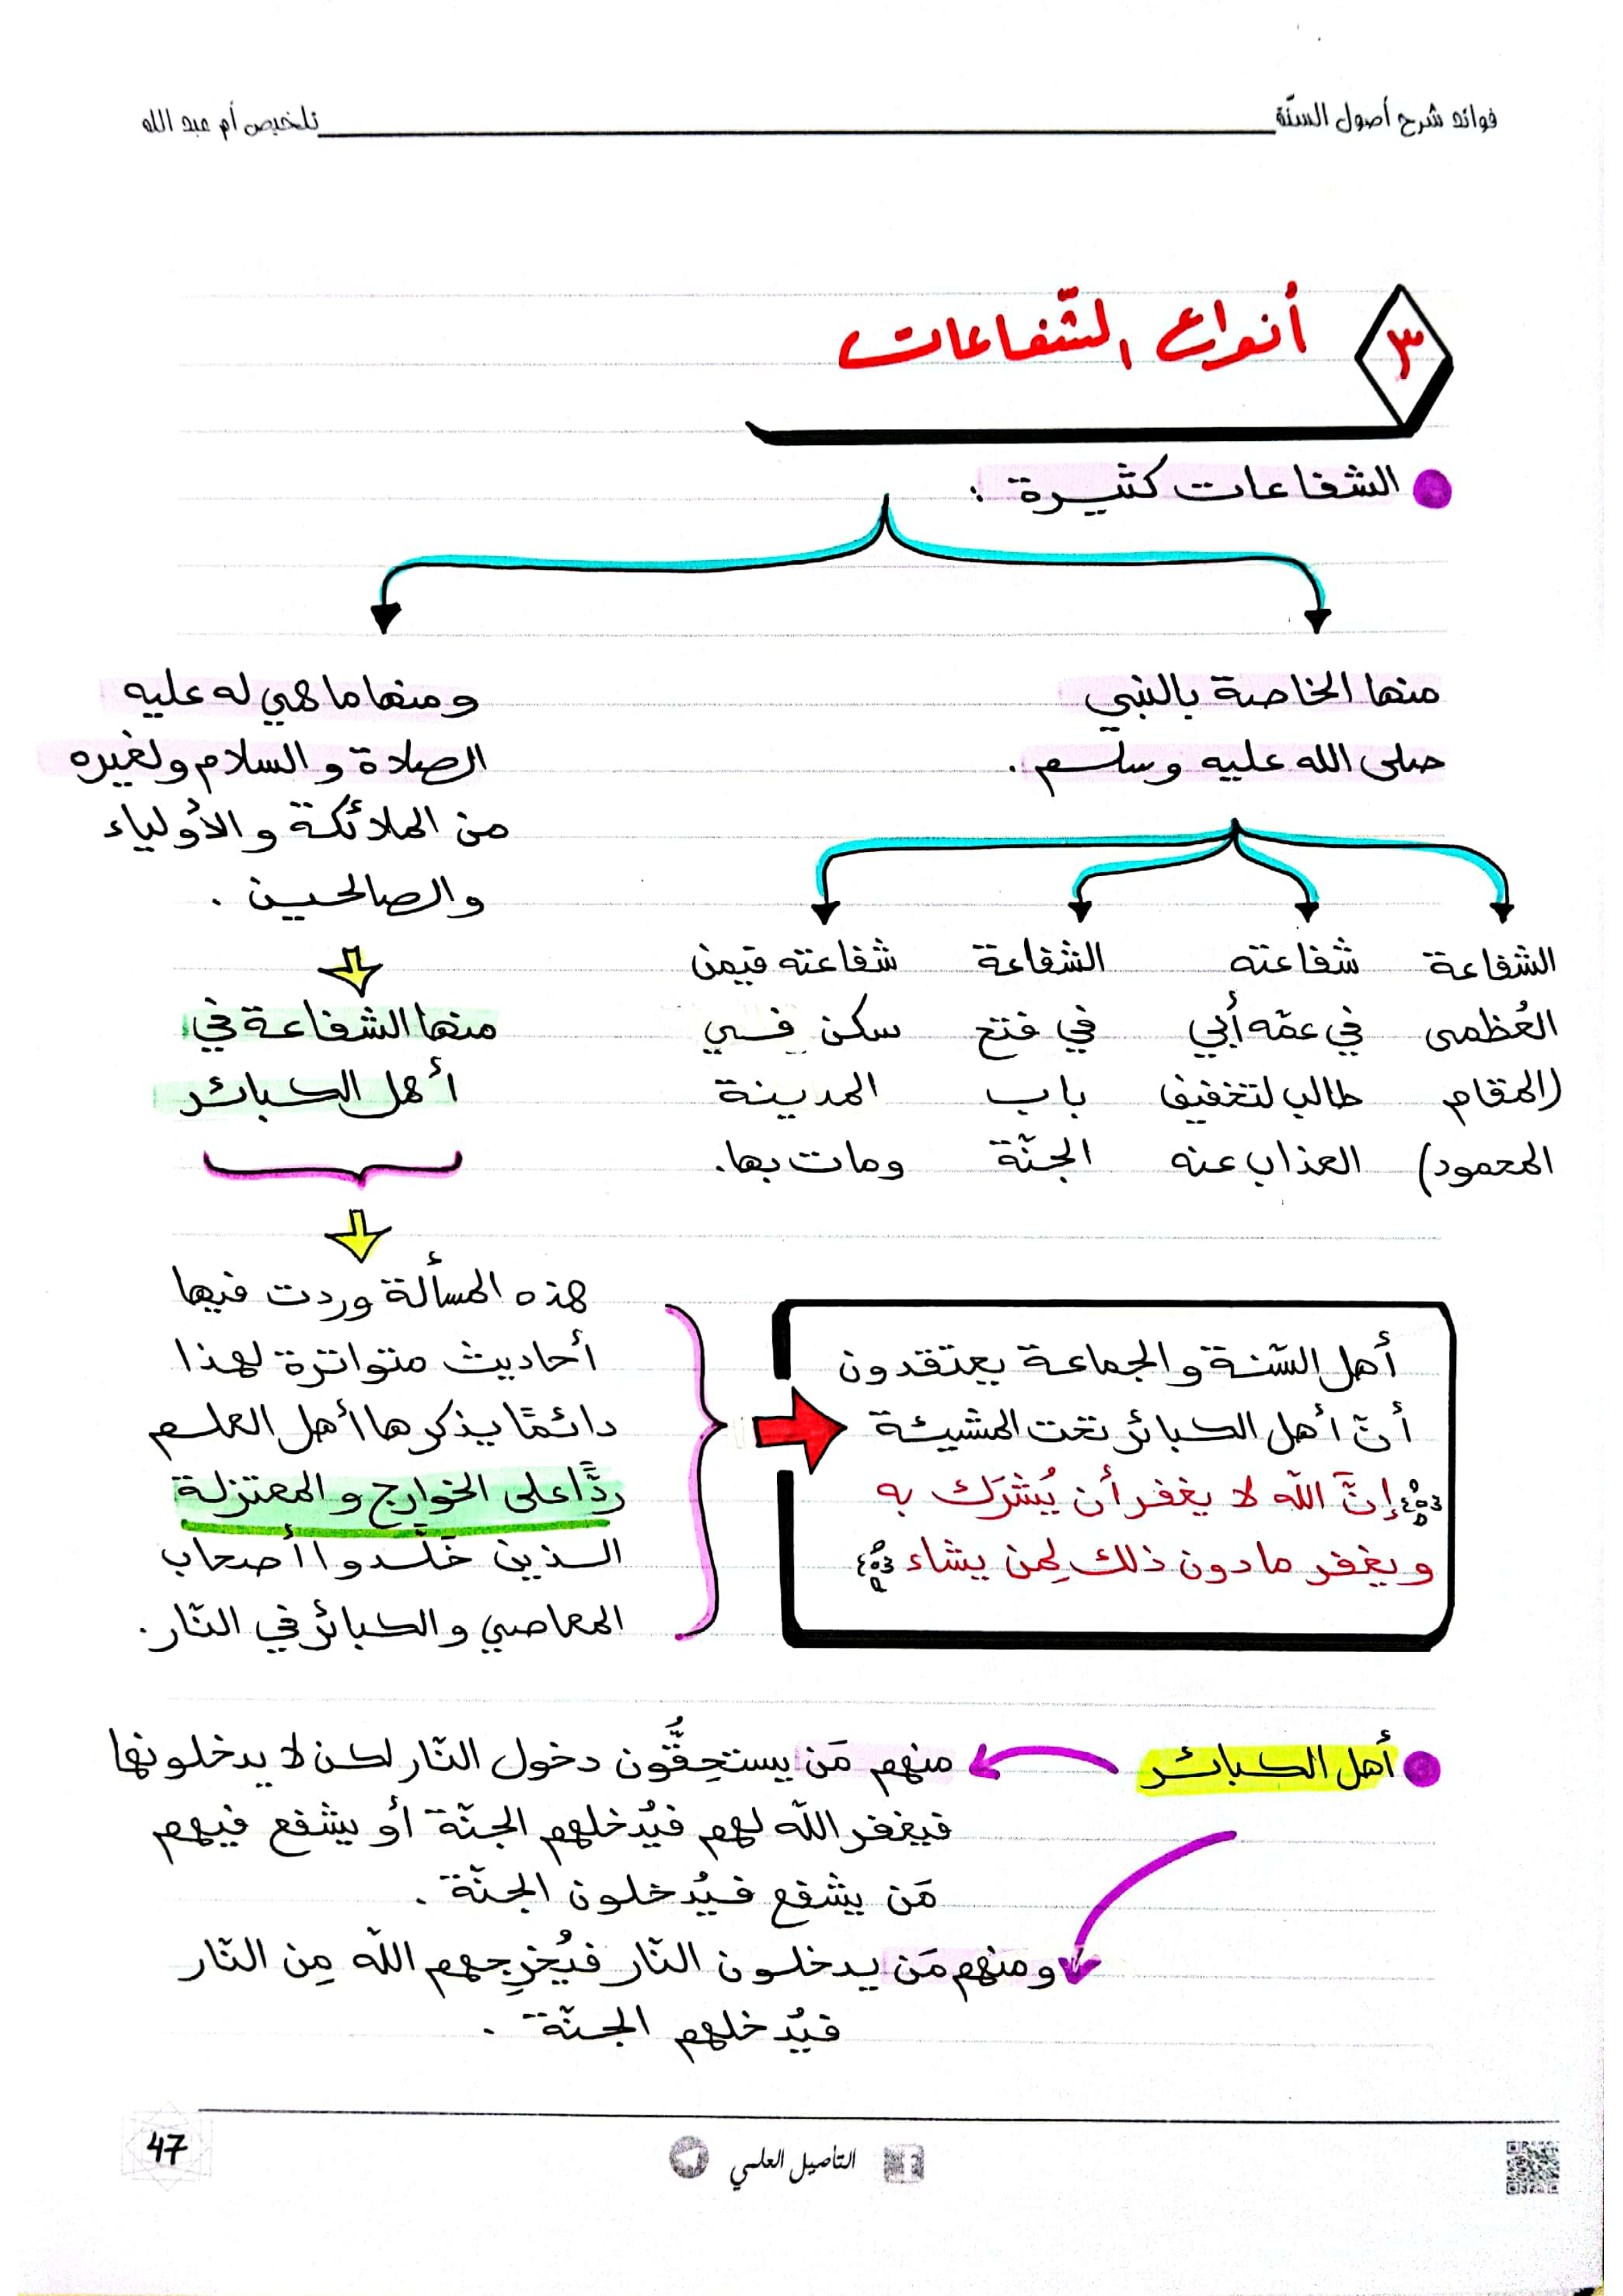 فوائد شرح أصول السنّة
تلخيص أم عبد الله
٣
أنواع الشّفاعات
الشفاعات كثيرة :
منها الخاصة بالنبي
صلى الله عليه وسلم .
الشفاعة
العُظمى
(المقام
المحمود)
شفاعته
في عمّه أبي
طالب لتخفيف
العذاب عنه
الشفاعة
في فتح
باب
الجنّة
شفاعته فيمن
سكن في
المدينة
ومات بها.
ومنها ما هي له عليه
الصلاة والسلام ولغيره
من الملائكة والأولياء
والصالحين .
منها الشفاعة في
أهل الكبائر
هذه المسألة وردت فيها
أحاديث متواترة لهذا
دائمًا يذكرها أهل العلم
ردًّا على الخوارج والمعتزلة
الذين خلّدوا أصحاب
المعاصي والكبائر في النّار.
أهل السّنة والجماعة يعتقدون
أنّ أهل الكبائر تحت المشيئة
﴿إنَّ اللّه لا يغفر أن يُشرَك به
ويغفر ما دون ذلك لِمن يشاء﴾
أهل الكبائر
منهم مَن يستحِقُّون دخول النّار لكن لا يدخلونها
فيغفر اللّه لهم فيُدخلهم الجنّة أو يشفع فيهم
مَن يشفع فيُدخلون الجنّة .
ومنهم مَن يدخلون النّار فيُخرِجهم اللّه مِن النّار
فيُدخلهم الجنّة .
التأصيل العلمي
47